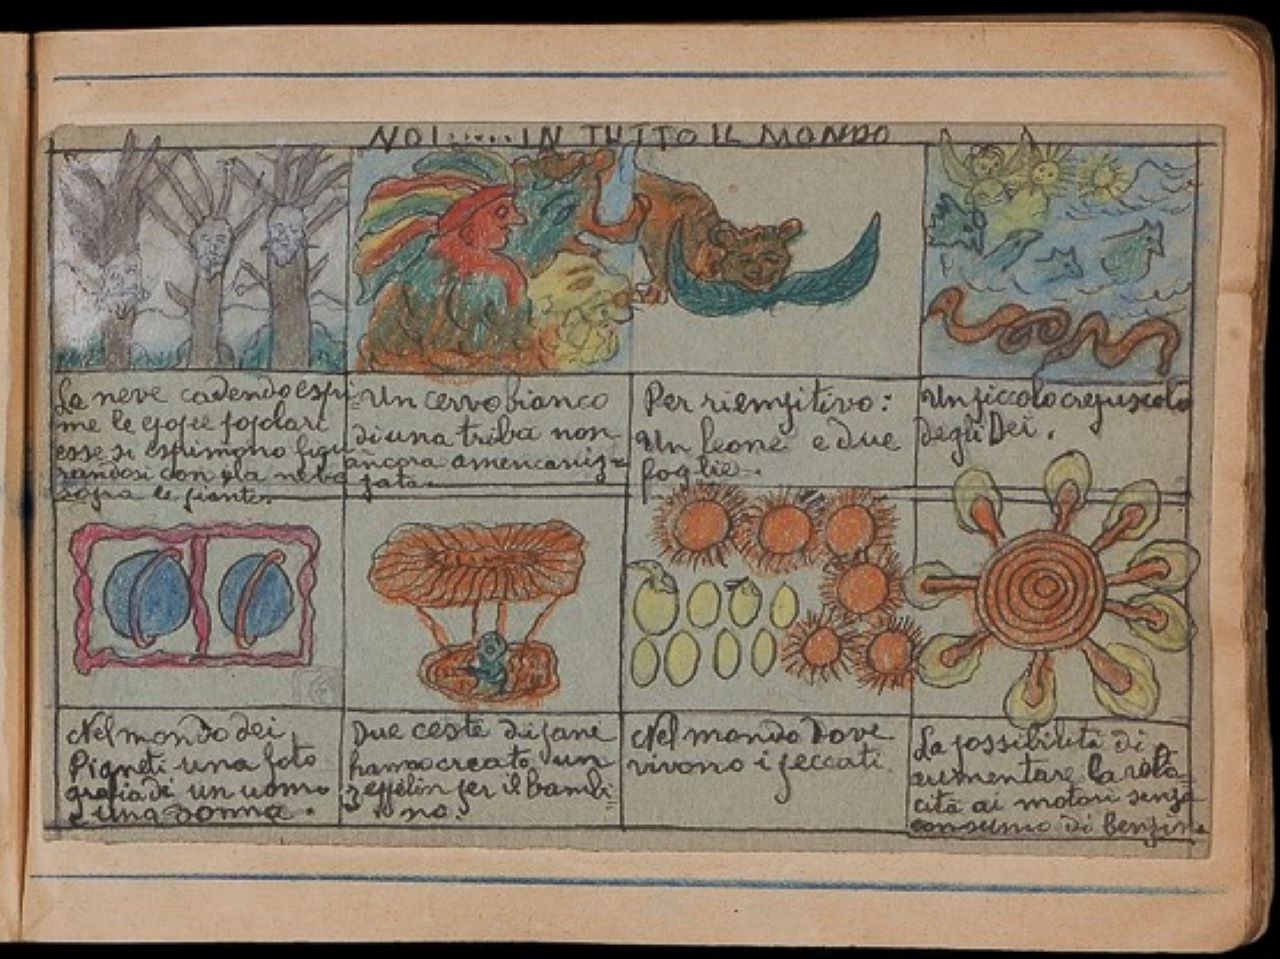 NOI...... IN TUTTO IL MONDO
La neve cadendo espri-
me le epopee popolari
esse si esprimono figu
randosi con la neve
sopra le piante.
Un cervo bianco
di una tribù non
ancora americaniz=
zata.
Per riempitivo:
Un leone e due
foglie.
Un piccolo crepuscolo
degli Dei.
Nel mondo dei
Pianeti una foto
grafia di un uomo
e una donna.
Due ceste di pane
hanno creato un
zeppelin per il bambi=
no.
Nel mondo dove
vivono i peccati.
La possibilità di
aumentare la velo=
cità ai motori senza
consumo di benzina